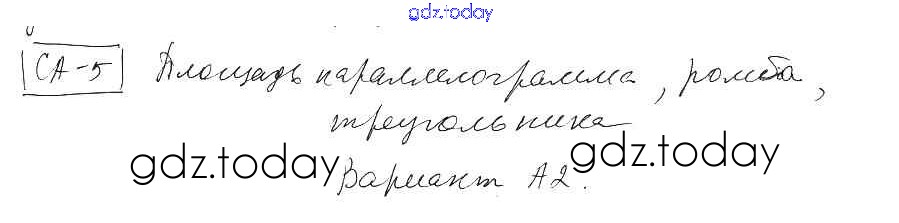 gdz.today
СА-5 Площадь параллелограмма, ромба,
треугольника
gdz.today gdz.today
Вариант А2.